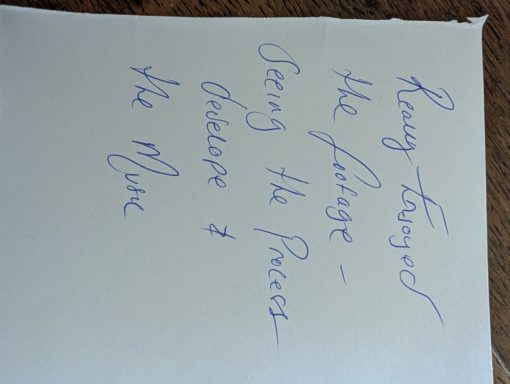 Really Enjoyed
the footage –
Seeing the Process
develope &
the Music